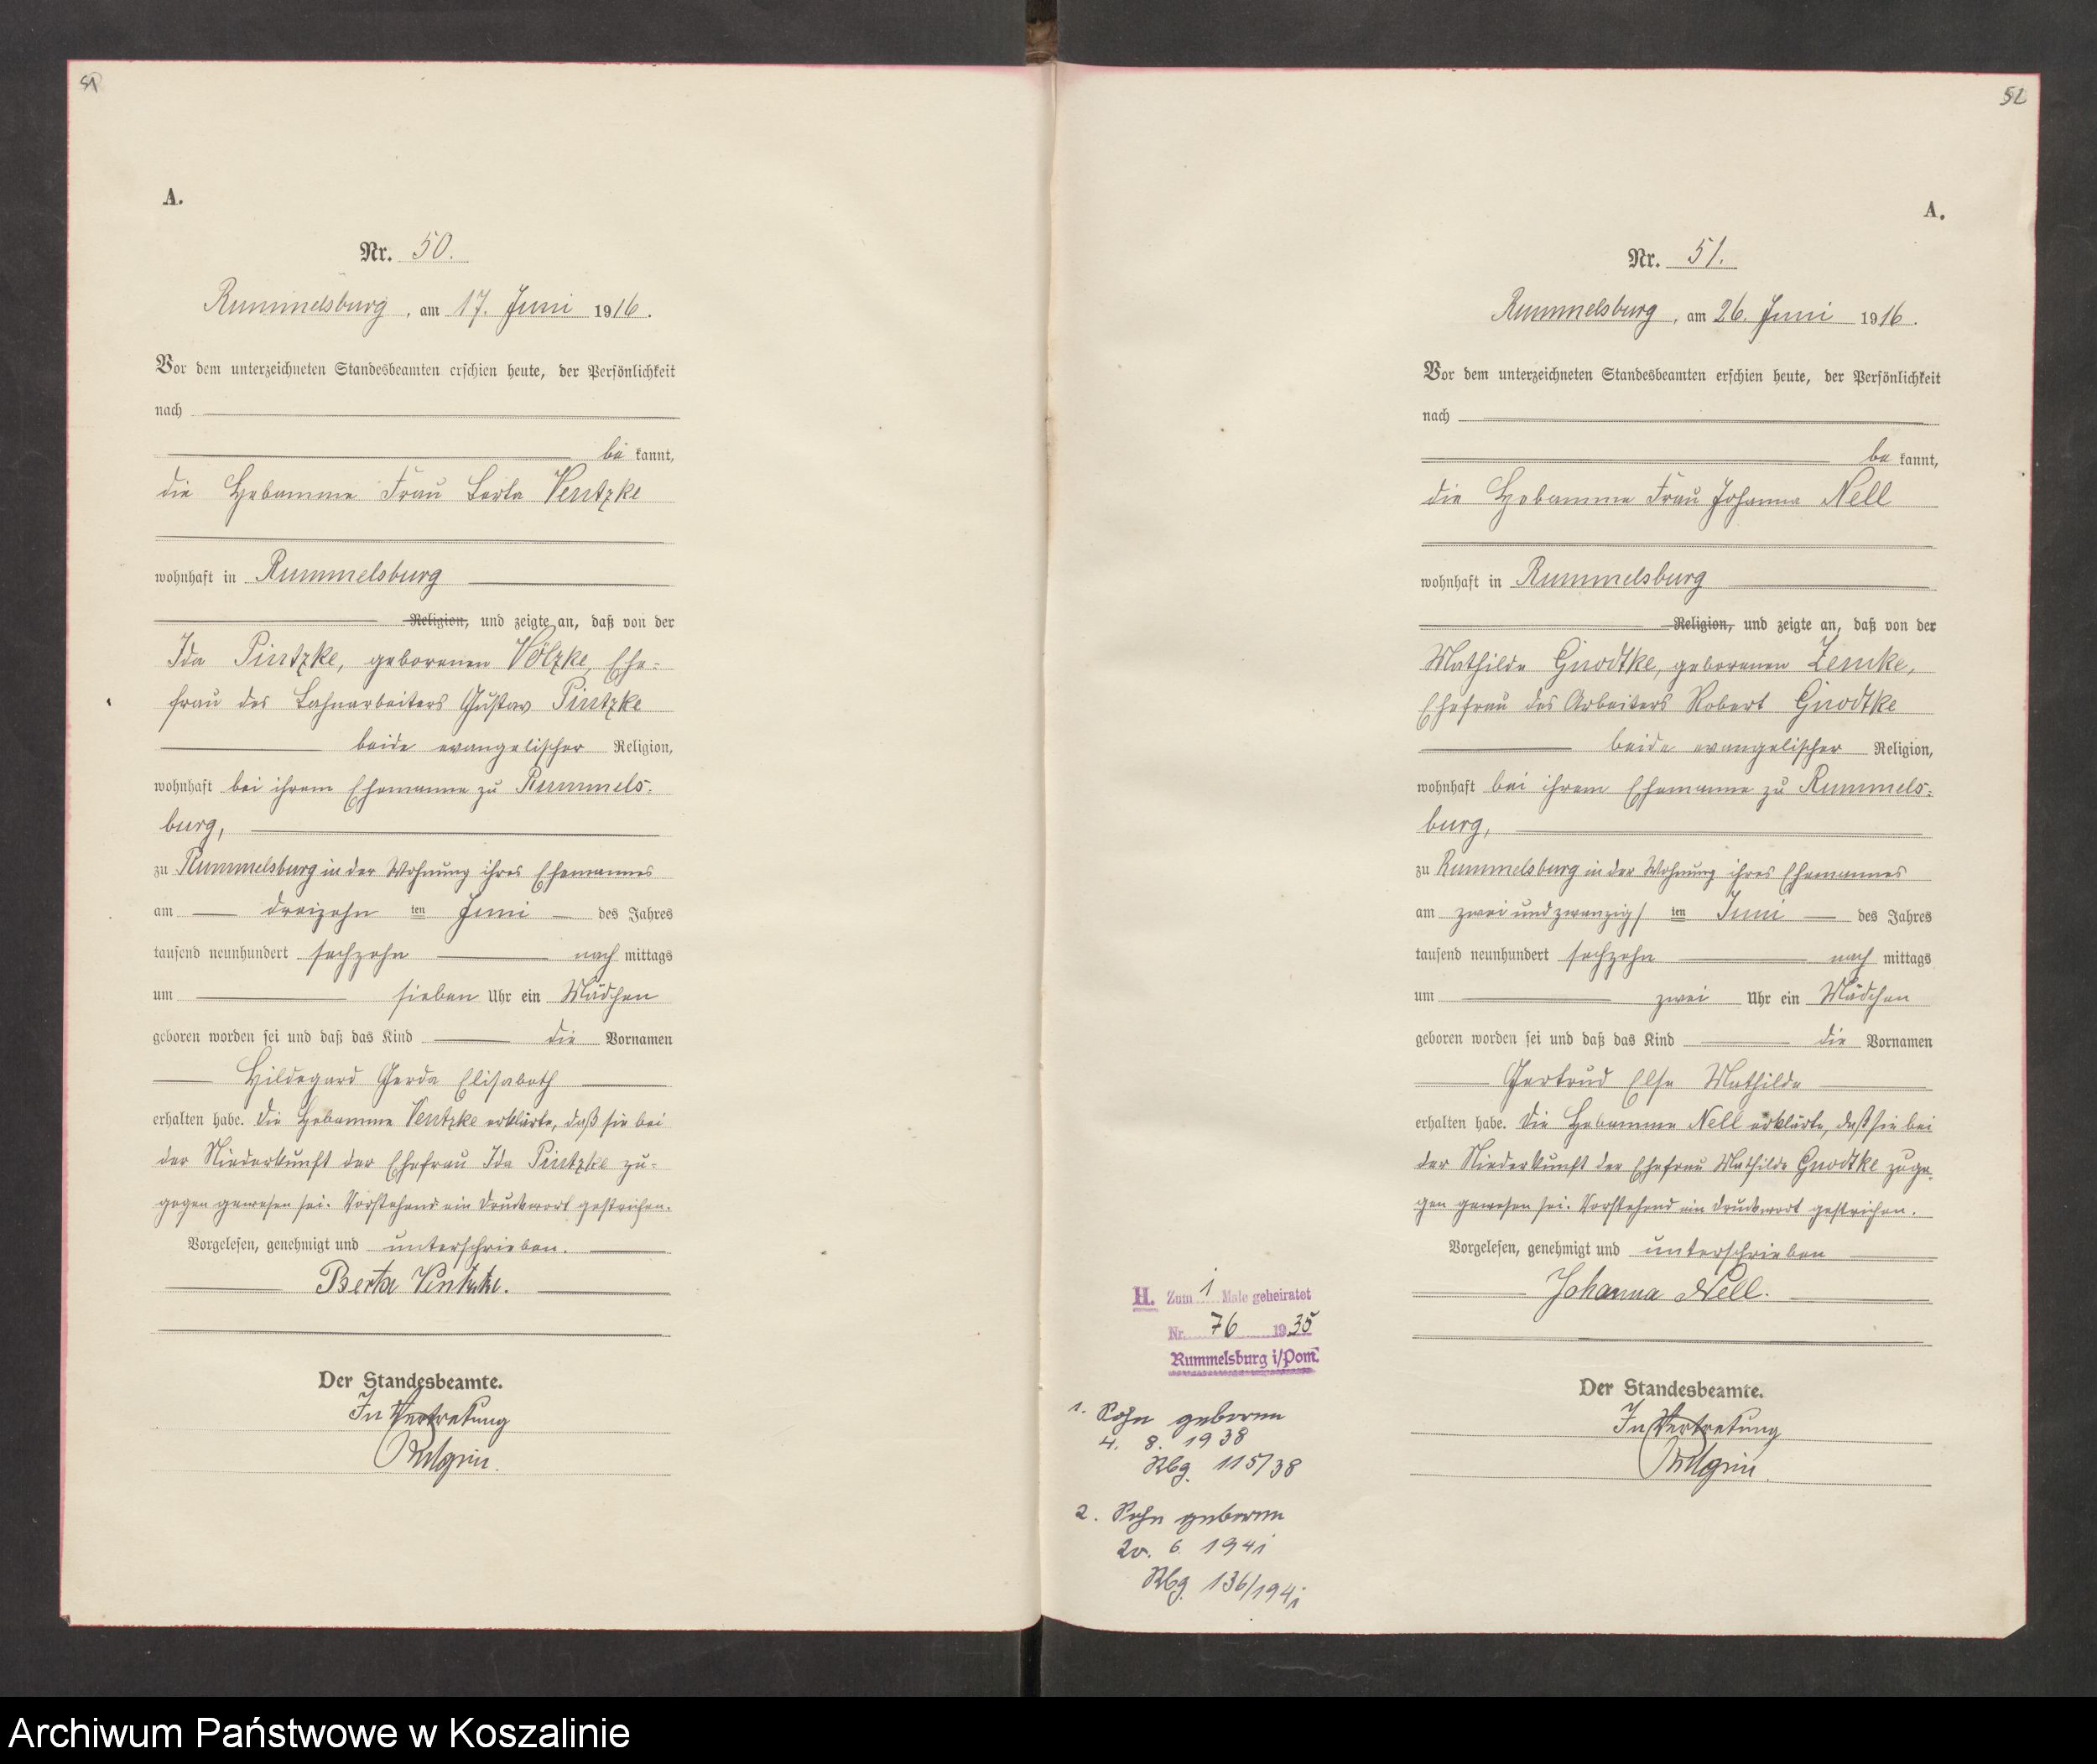 51
A.
Nr. 50.
Rummelsburg, am 17. Juni 1916.
Vor dem unterzeichneten Standesbeamten erschien heute, der Persönlichkeit
nach
be kannt,
die Hebamme Frau Berta Ventzke
wohnhaft in Rummelsburg
Religion, und zeigte an, daß von der
Ida Pintzke, geborenen Völzke, Ehe-
frau des Bahnarbeiters Gustav Pintzke
beide evangelischer Religion,
wohnhaft bei ihrem Ehemanne zu Rummels-
burg,
zu Rummelsburg in der Wohnung ihres Ehemannes
am dreizehn ten Juni des Jahres
tausend neunhundert sechzehn nach mittags
um sieben Uhr ein Mädchen
geboren worden sei und daß das Kind die Vornamen
Hildegard Gerda Elisabeth
erhalten habe. Die Hebamme Ventzke erklärte, daß sie bei
der Niederkunft der Ehefrau Ida Pintzke zu-
gegen gewesen sei. Vorstehend ein Druckwort gestrichen.
Vorgelesen, genehmigt und unterschrieben.
Berta Ventzke.
Der Standesbeamte.
In Vertretung
52
A.
Nr. 51.
Rummelsburg, am 26. Juni 1916.
Vor dem unterzeichneten Standesbeamten erschien heute, der Persönlichkeit
nach
be kannt,
die Hebamme Frau Johanna Nell
wohnhaft in Rummelsburg
Religion, und zeigte an, daß von der
Mathilde Gnodtke, geborenen Zemke,
Ehefrau des Arbeiters Robert Gnodtke
beide evangelischer Religion,
wohnhaft bei ihrem Ehemanne zu Rummels-
burg,
zu Rummelsburg in der Wohnung ihres Ehemannes
am zwei und zwanzigs ten Juni des Jahres
tausend neunhundert sechzehn nach mittags
um zwei Uhr ein Mädchen
geboren worden sei und daß das Kind die Vornamen
Gertrud Else Mathilde
erhalten habe. Die Hebamme Nell erklärte, daß sie bei
der Niederkunft der Ehefrau Mathilde Gnodtke zuge-
gen gewesen sei. Vorstehend ein Druckwort gestrichen.
Vorgelesen, genehmigt und unterschrieben
Johanna Nell.
Der Standesbeamte.
In Vertretung
H. Zum 1 Male geheiratet
Nr. 76 1935
Rummelsburg i/Pom.
1. Sohn geboren
4. 8. 1938
Rbg. 115/38
2. Sohn geboren
20. 6. 1941
Rbg. 136/1941
Archiwum Państwowe w Koszalinie